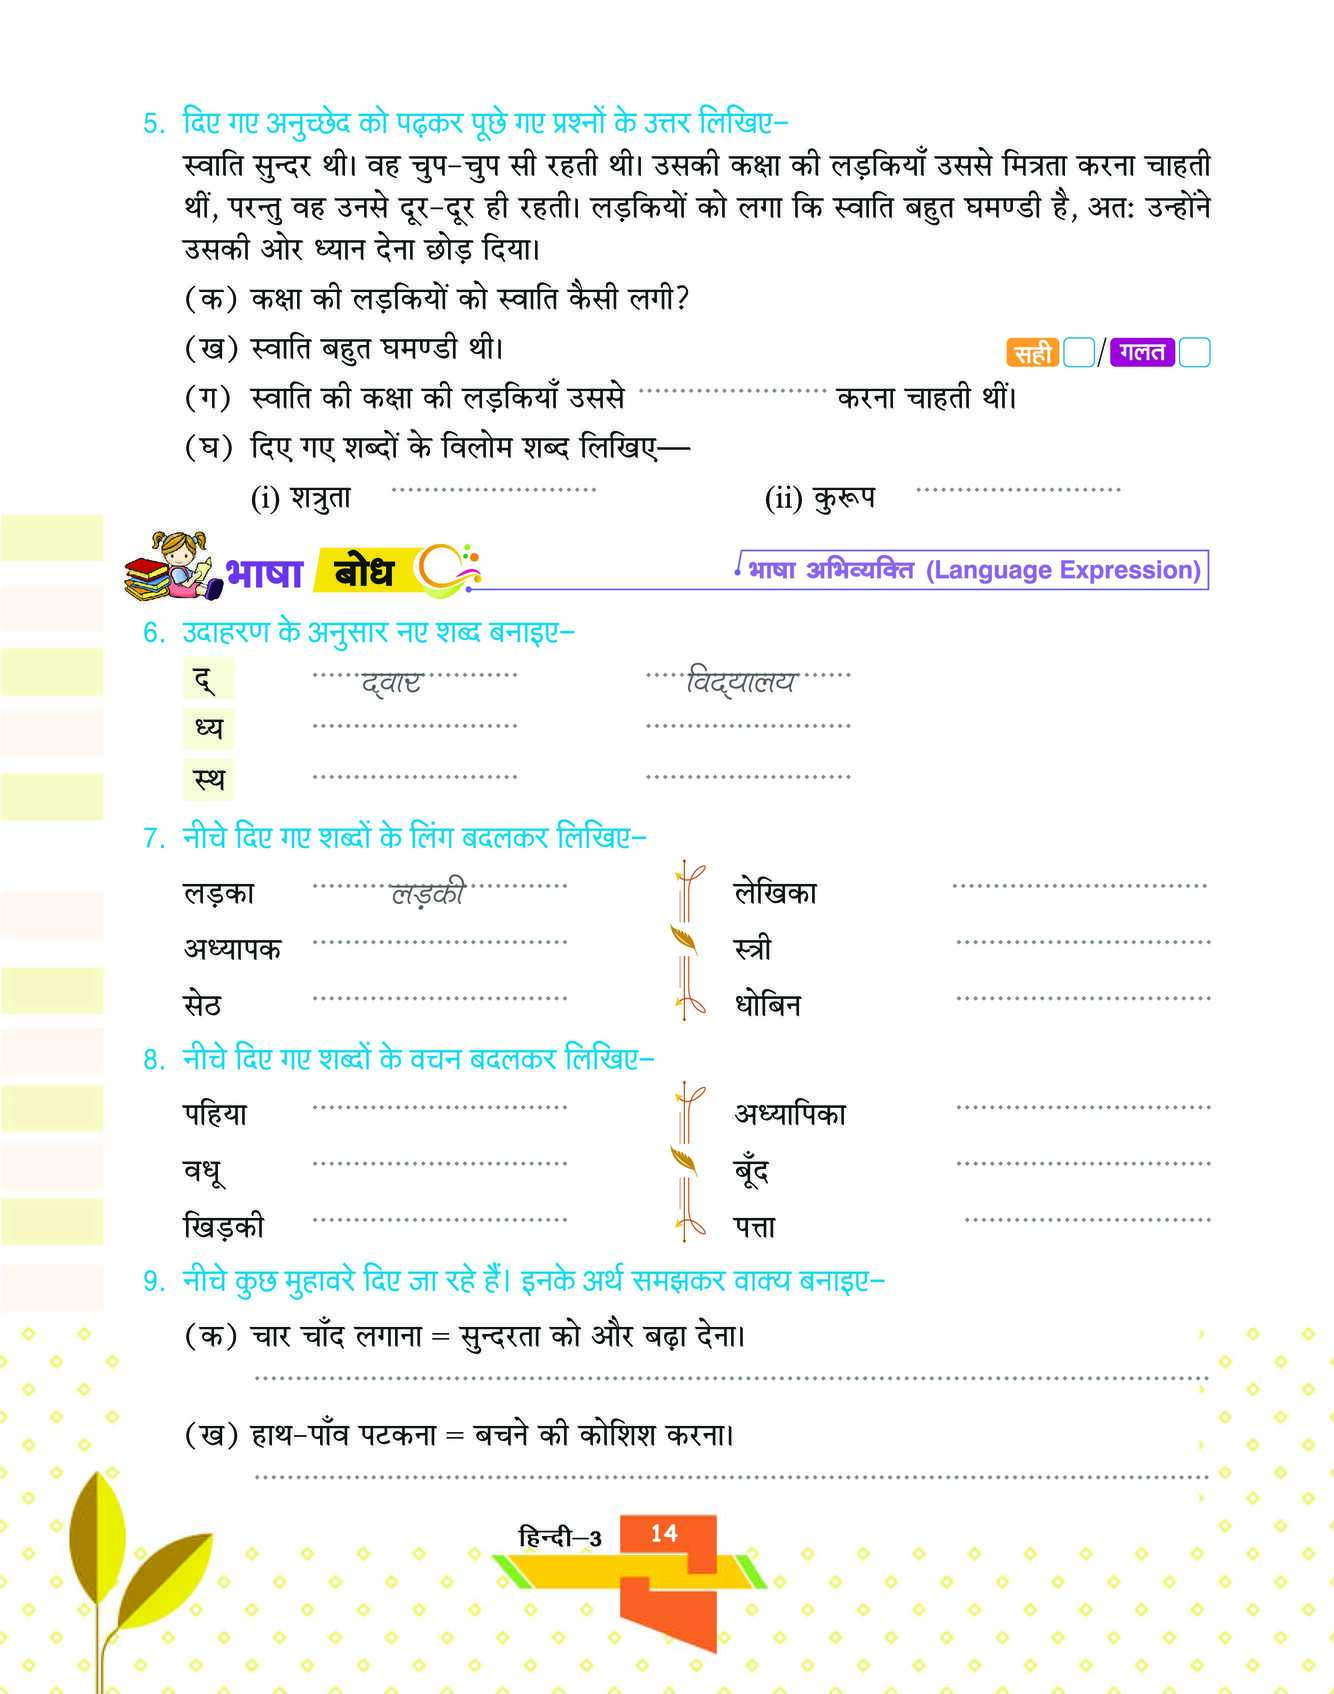 5. दिए गए अनुच्छेद को पढ़कर पूछे गए प्रश्नों के उत्तर लिखिए–
स्वाति सुन्दर थी। वह चुप-चुप सी रहती थी। उसकी कक्षा की लड़कियाँ उससे मित्रता करना चाहती
थीं, परन्तु वह उनसे दूर-दूर ही रहती। लड़कियों को लगा कि स्वाति बहुत घमण्डी है, अतः उन्होंने
उसकी ओर ध्यान देना छोड़ दिया।
(क) कक्षा की लड़कियों को स्वाति कैसी लगी?
(ख) स्वाति बहुत घमण्डी थी। सही / गलत
(ग) स्वाति की कक्षा की लड़कियाँ उससे ........................ करना चाहती थीं।
(घ) दिए गए शब्दों के विलोम शब्द लिखिए—
(i) शत्रुता ........................ (ii) कुरूप ........................
भाषा बोध भाषा अभिव्यक्ति (Language Expression)
6. उदाहरण के अनुसार नए शब्द बनाइए–
द् द्‌वार विद्‌यालय
ध्य ........................ ........................
स्थ ........................ ........................
7. नीचे दिए गए शब्दों के लिंग बदलकर लिखिए–
लड़का लड़की लेखिका ........................
अध्यापक ........................ स्त्री ........................
सेठ ........................ धोबिन ........................
8. नीचे दिए गए शब्दों के वचन बदलकर लिखिए–
पहिया ........................ अध्यापिका ........................
वधू ........................ बूँद ........................
खिड़की ........................ पत्ता ........................
9. नीचे कुछ मुहावरे दिए जा रहे हैं। इनके अर्थ समझकर वाक्य बनाइए–
(क) चार चाँद लगाना = सुन्दरता को और बढ़ा देना।
(ख) हाथ-पाँव पटकना = बचने की कोशिश करना।
हिन्दी–3 14